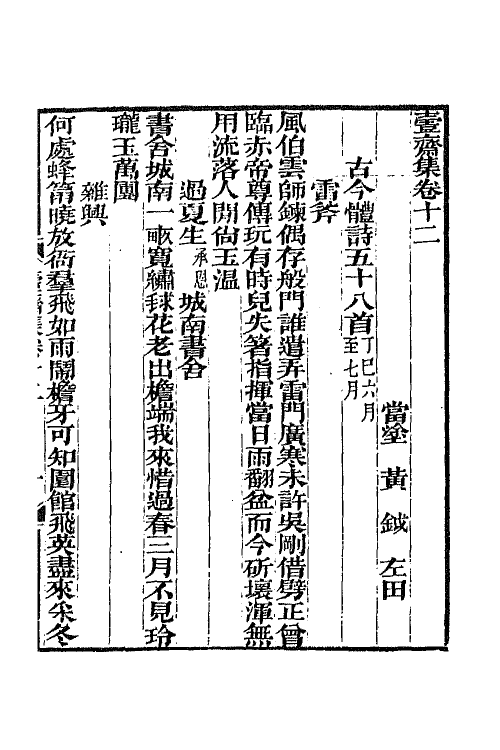 壹齋集卷十二
當塗 黃鉞 左田
古今體詩五十八首丁巳六月至七月
雷斧
風伯雲師鍊偶存般門誰遣弄雷門廣寒未許吳剛借劈正曾
臨赤帝尊傳玩有時兒失箸指揮當日雨翻盆而今斫壞渾無
用流落人閒尙玉溫
過夏生承恩城南書舍
書舍城南一畞寬繡毬花老出檐端我來惜過春三月不見玲
瓏玉萬團
雜興
何處蜂筩曉放衙羣飛如雨鬧檐牙可知圍館飛英盡來采冬